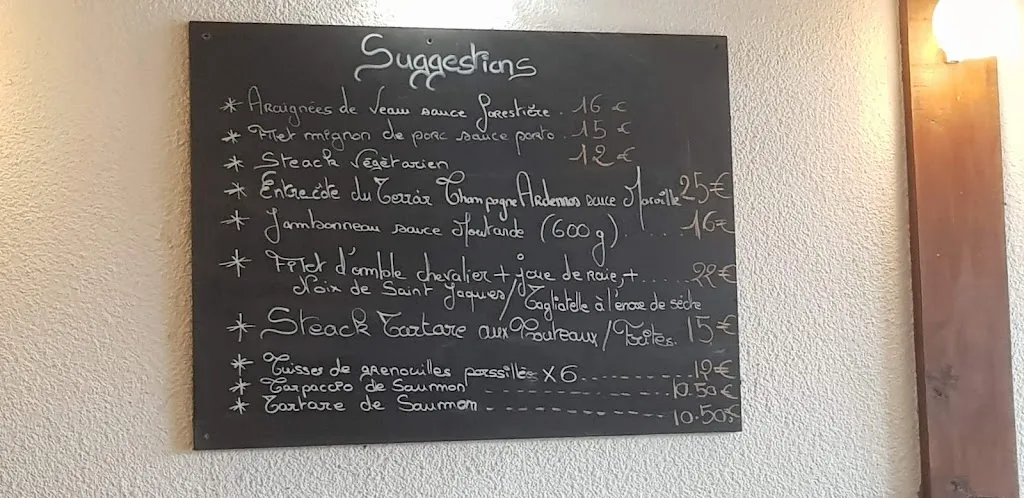 Suggestions
* Araignées de veau sauce forestière . 16 €
* Filet mignon de porc sauce porto .. 15 €
* Steack Végètarien 12 €
* Entrecôte du Terroir Champagne Ardennes sauce Maroille 25 €
* Jambonneau sauce Moutarde (600 g) ..... 16 €
* Filet d'omble chevalier + joue de raie, + ....... 22 €
Noix de Saint Jaques / Tagliatelle à l'encre de sèche
* Steack Tartare aux Couteaux / Frites. 15 €
* Cuisses de grenouilles persillées X6 ------------- €
* Carpaccio de Saumon ------------- 10.50 €
* Tartare de Saumon ------------- 10.50 €